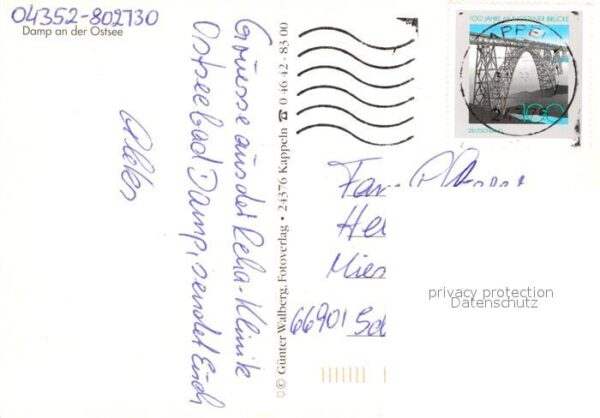 04352-802730
Damp an der Ostsee
Grüsse aus der Reha-Klinik
Ostseebad Damp, sendet Euch
© Günter Walberg, Fotoverlag • 24376 Kappeln ☎ 0 46 42 - 83 00
100 JAHRE MÜNGSTENER BRÜCKE
100
DEUTSCHLAND
KAPPELN
Fam.
He
Mies
66901 Sch
privacy protection
Datenschutz